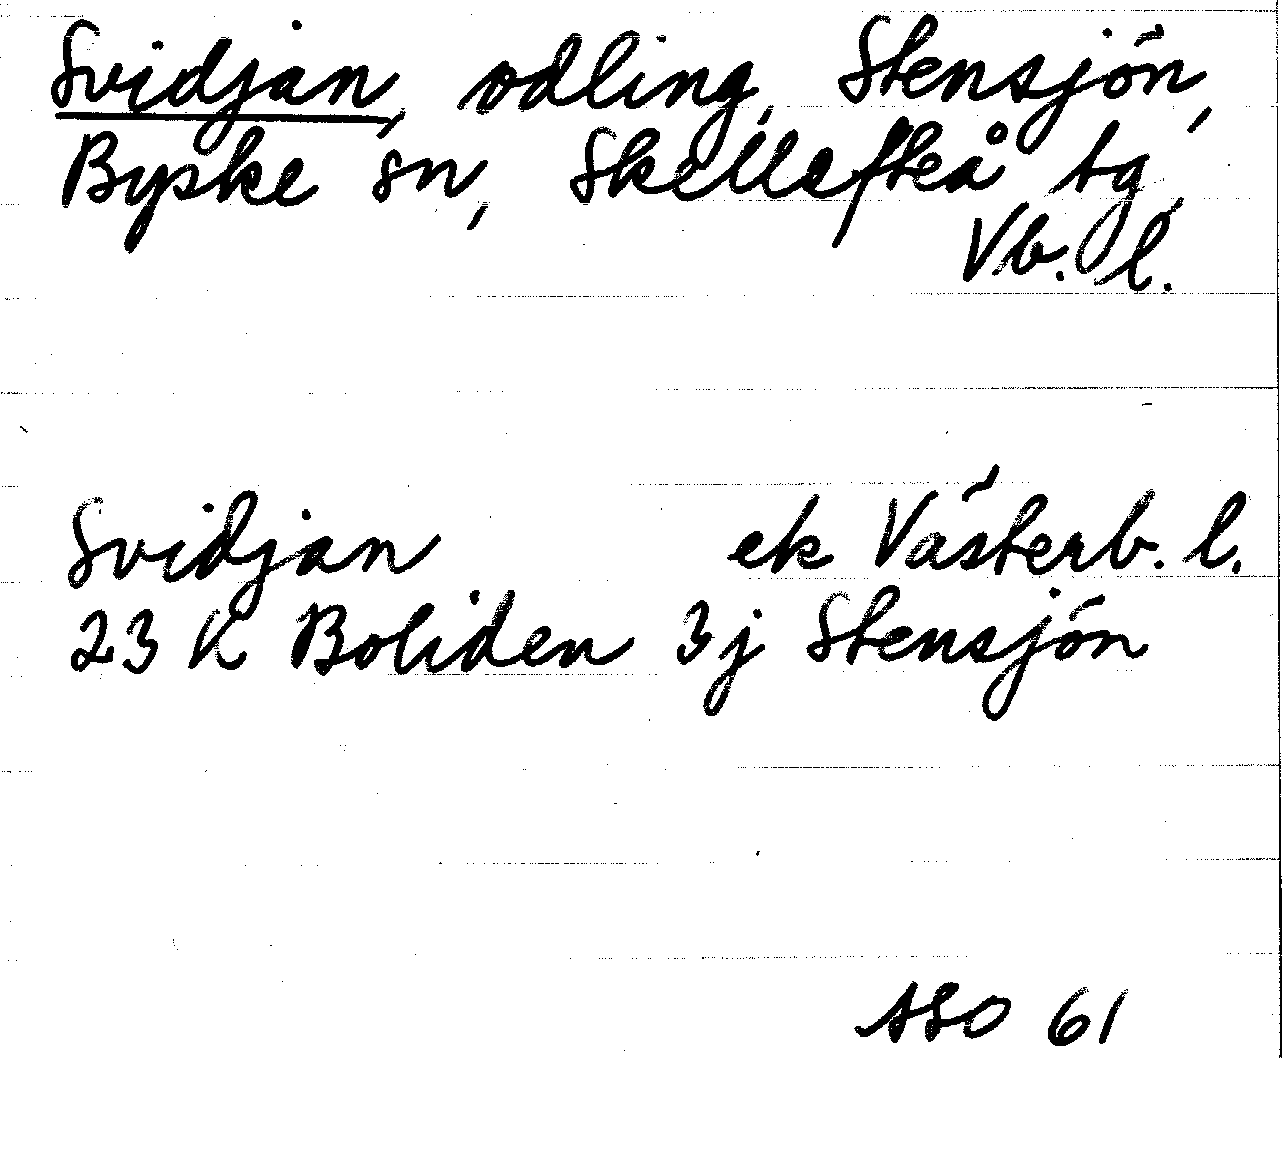 Svidjan, odling, Stensjön,
Byske sn, Skellefteå tg,
Vb. l.
Svidjan ek Västerb. l.
23 K Boliden 3j Stensjön
ASO 61